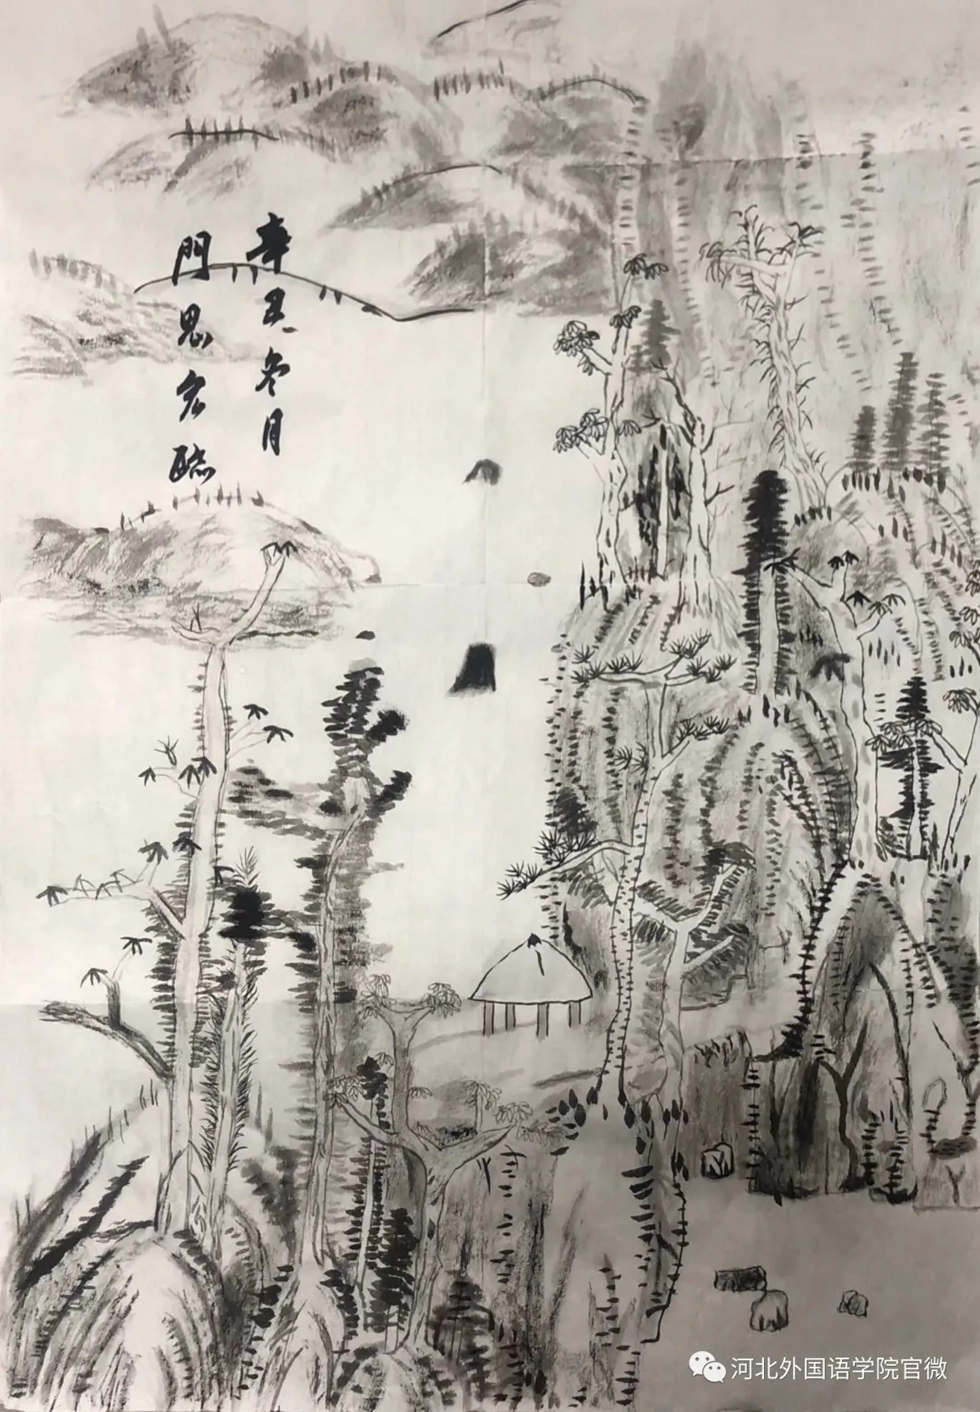 辛丑冬月
門思宏臨
河北外国语学院官微